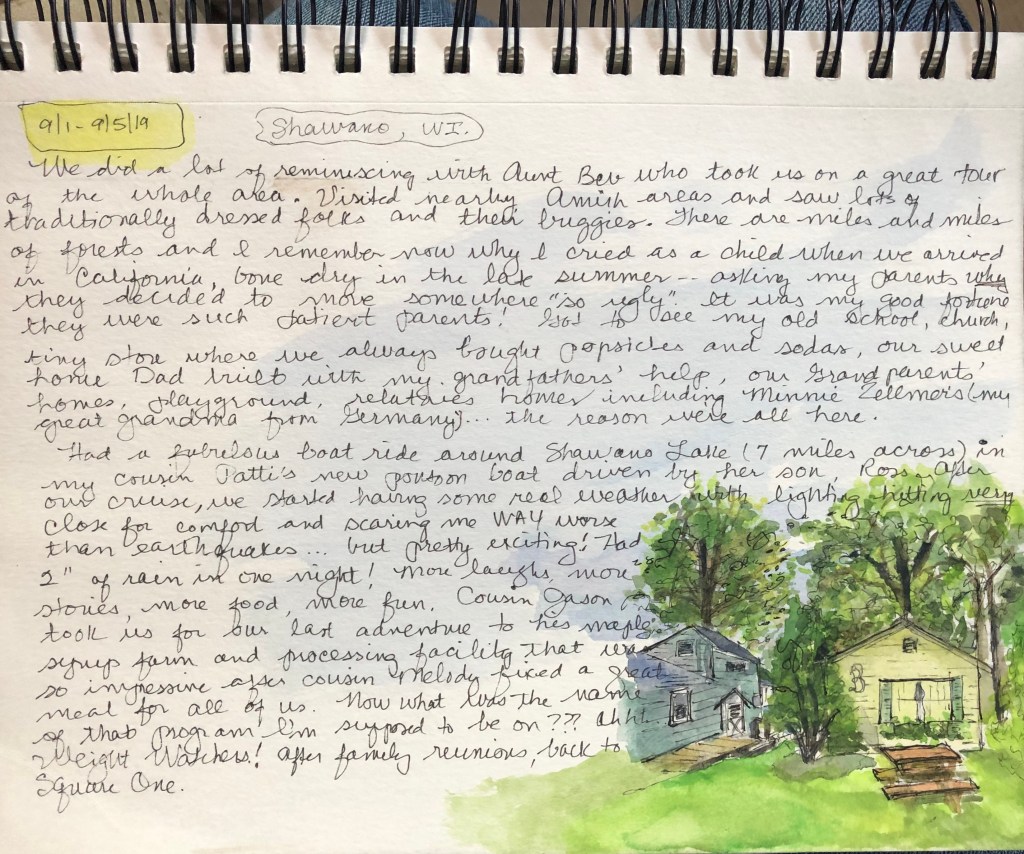 9/1 - 9/5/19
Shawano, WI.
We did a lot of reminiscing with Aunt Bev who took us on a great tour
of the whole area. Visited nearby Amish areas and saw lots of
traditionally dressed folks and their buggies. There are miles and miles
of forests and I remember now why I cried as a child when we arrived
in California, bone dry in the late summer -- asking my parents why
they decided to move somewhere "so ugly". It was my good fortune
they were such patient parents! Got to see my old school, church,
tiny store where we always bought popsicles and sodas, our sweet
home Dad built with my grandfathers' help, our Grandparents'
homes, playground, relatives homes including Minnie Zellmers (my
great grandma from Germany)... the reason we're all here.
Had a fabulous boat ride around Shawano Lake (7 miles across) in
my cousin Patti's new pontoon boat driven by her son, Ross. After
our cruise, we started having some real weather with lighting hitting very
close for comfort and scaring me WAY worse
than earthquakes... but pretty exciting! Had
2" of rain in one night! More laughs, more
stories, more food, more fun. Cousin Jason
took us for our last adventure to his maple
syrup farm and processing facility that was
so impressive after cousin Melody fixed a great
meal for all of us. Now what was the name
of that program I'm supposed to be on??? Ahh!
Weight Watchers! After family reunions, back to
Square One.